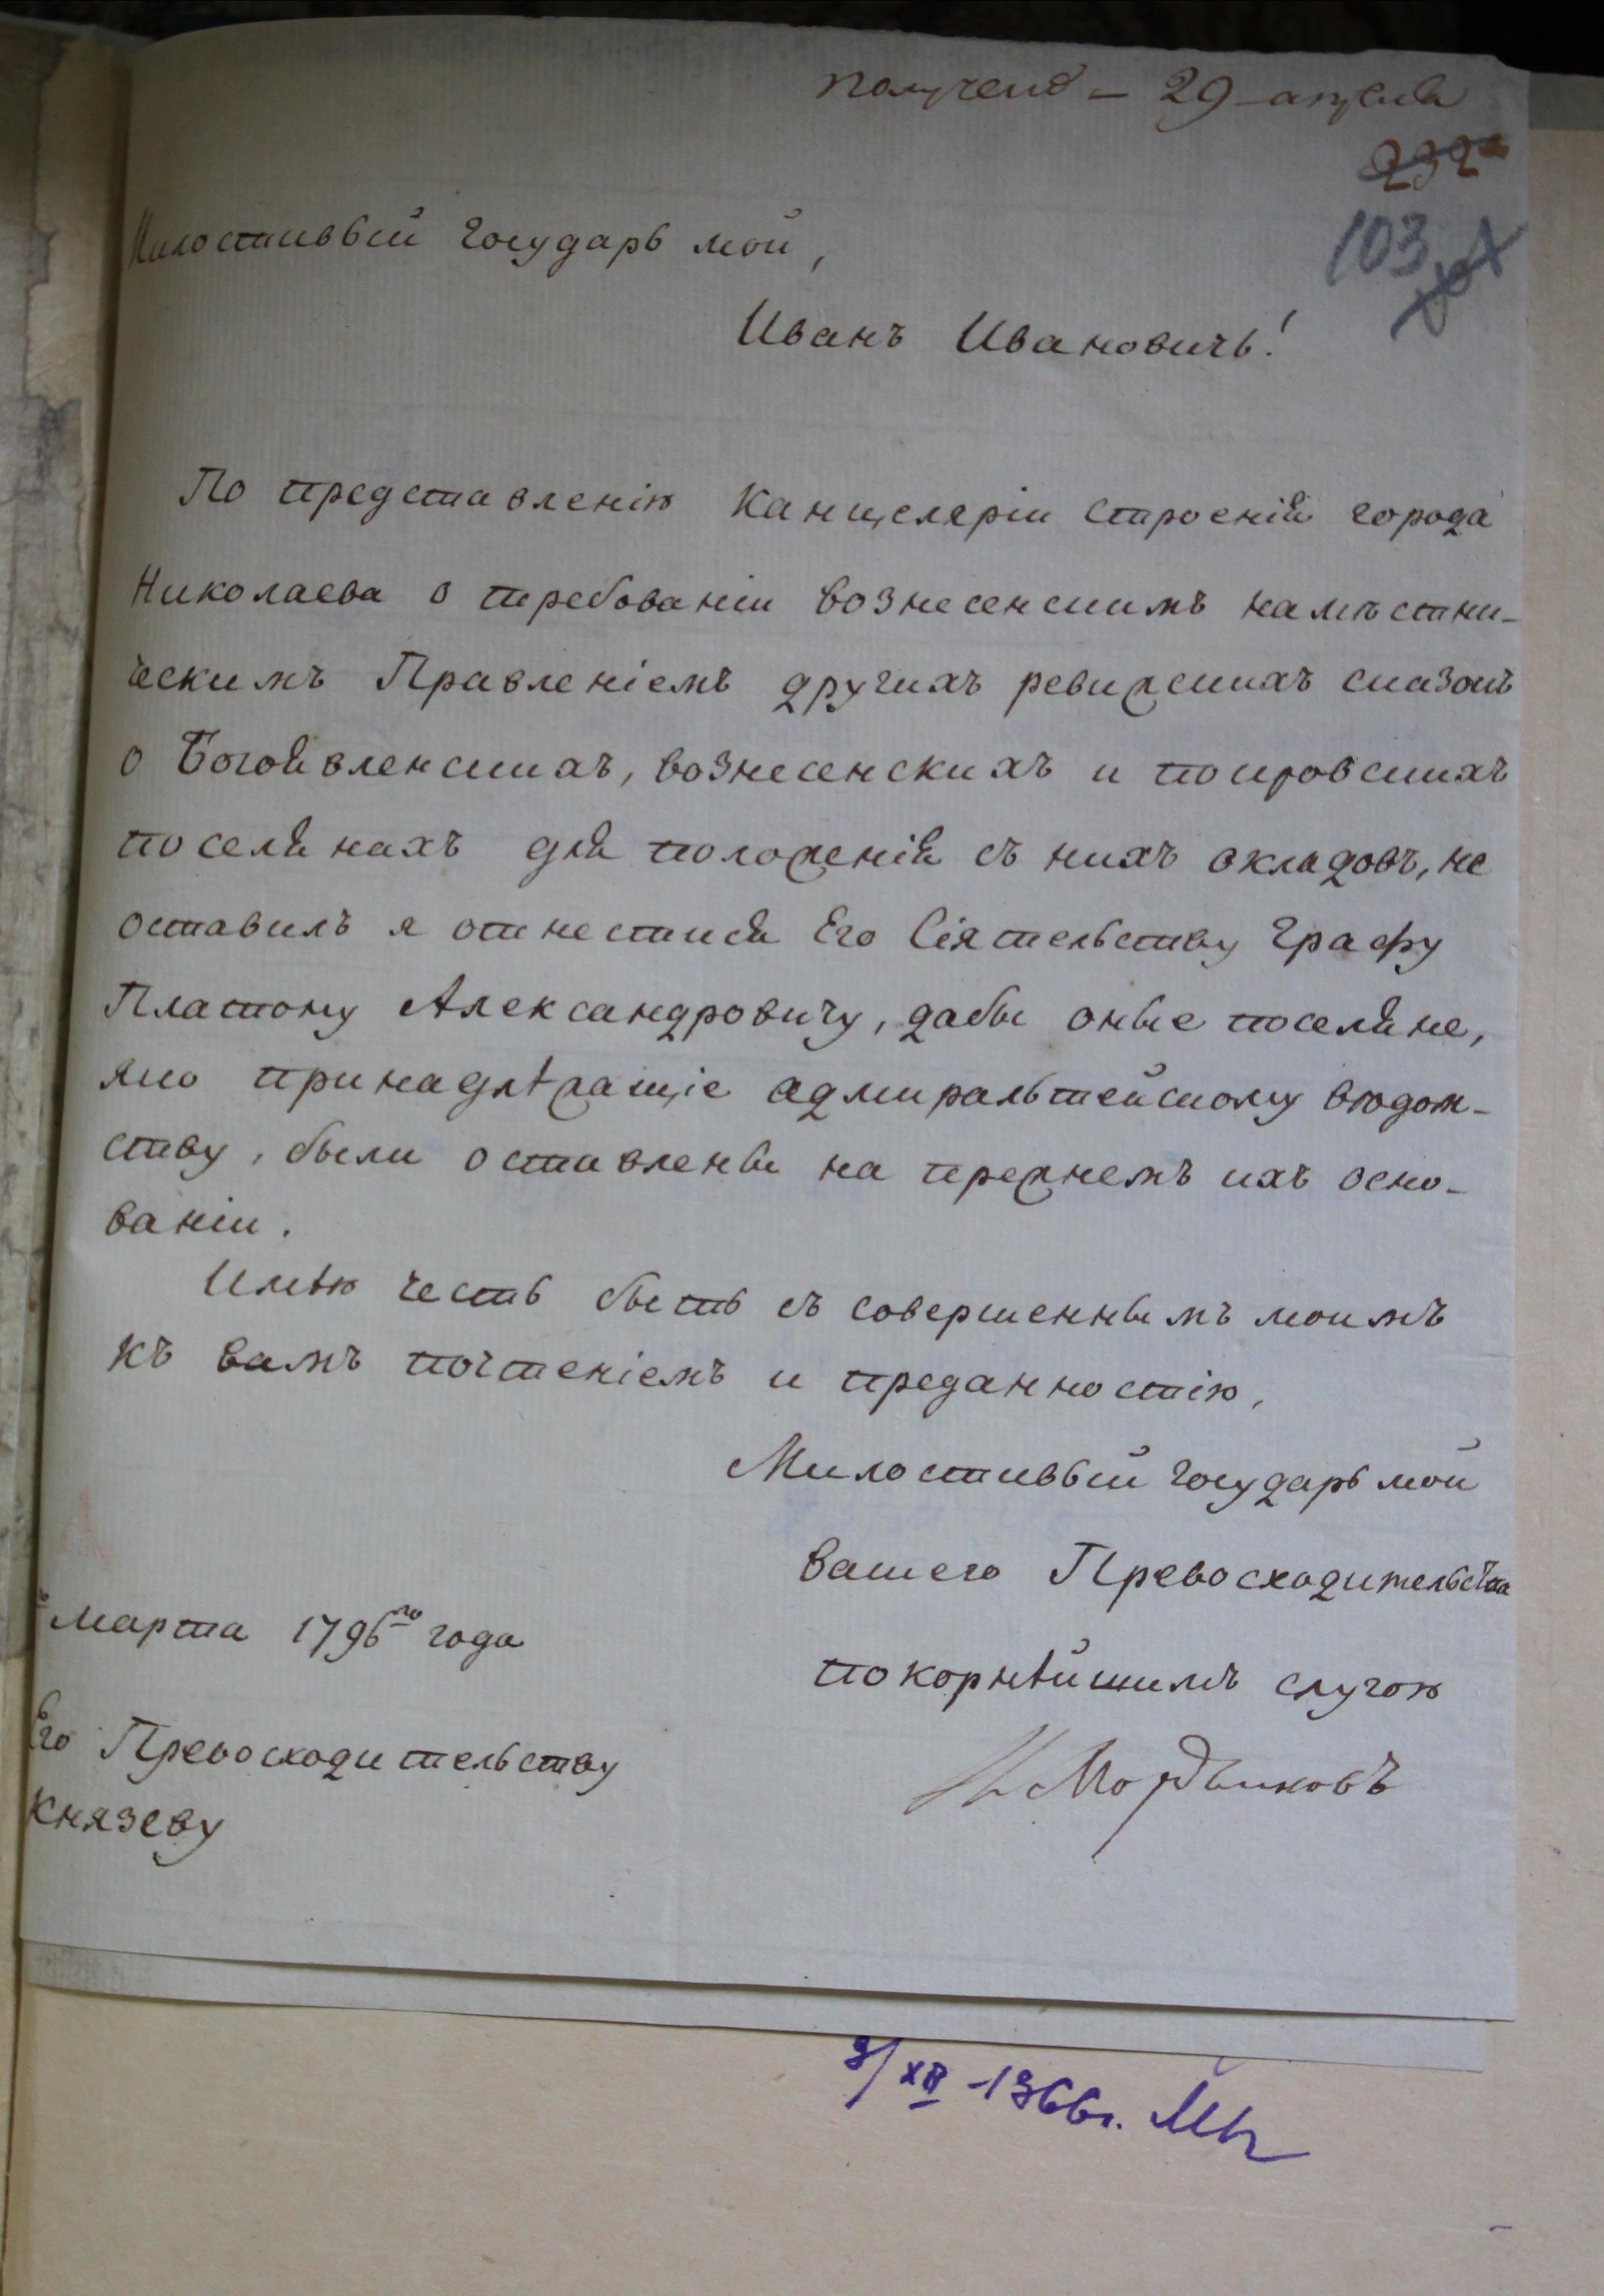 получено – 29 апреля
232
103
Милостивый государь мой,
Иванъ Ивановичь!
По представленію Канцеляріи строенія города
Николаева о требованіи вознесенскимъ намѣстни-
ческимъ Правленіемъ другихъ ревижскихъ сказокъ
о Богоявленскихъ, вознесенскихъ и покровскихъ
поселянахъ для положенія съ нихъ окладовъ, не
оставилъ я отнестися Его Сіятельству Графу
Платону Александровичу, дабы оные поселяне,
яко принадлѣжащіе адмиральтейскому вѣдом-
ству, были оставлены на прежнемъ ихъ осно-
ваніи.
Имѣю честь быть съ совершеннымъ моимъ
къ вамъ почтеніемъ и преданностію,
Милостивый государь мой
вашего Превосходительства
покорнѣйшимъ слугою
Н Мордвиновъ
марта 1796го года
Его Превосходительству
Князеву
9/XII -1966г.